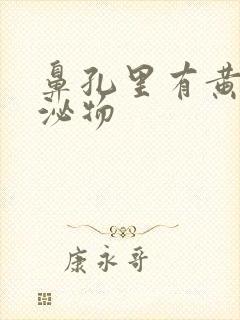 鼻孔里有黄
泌物
康永哥